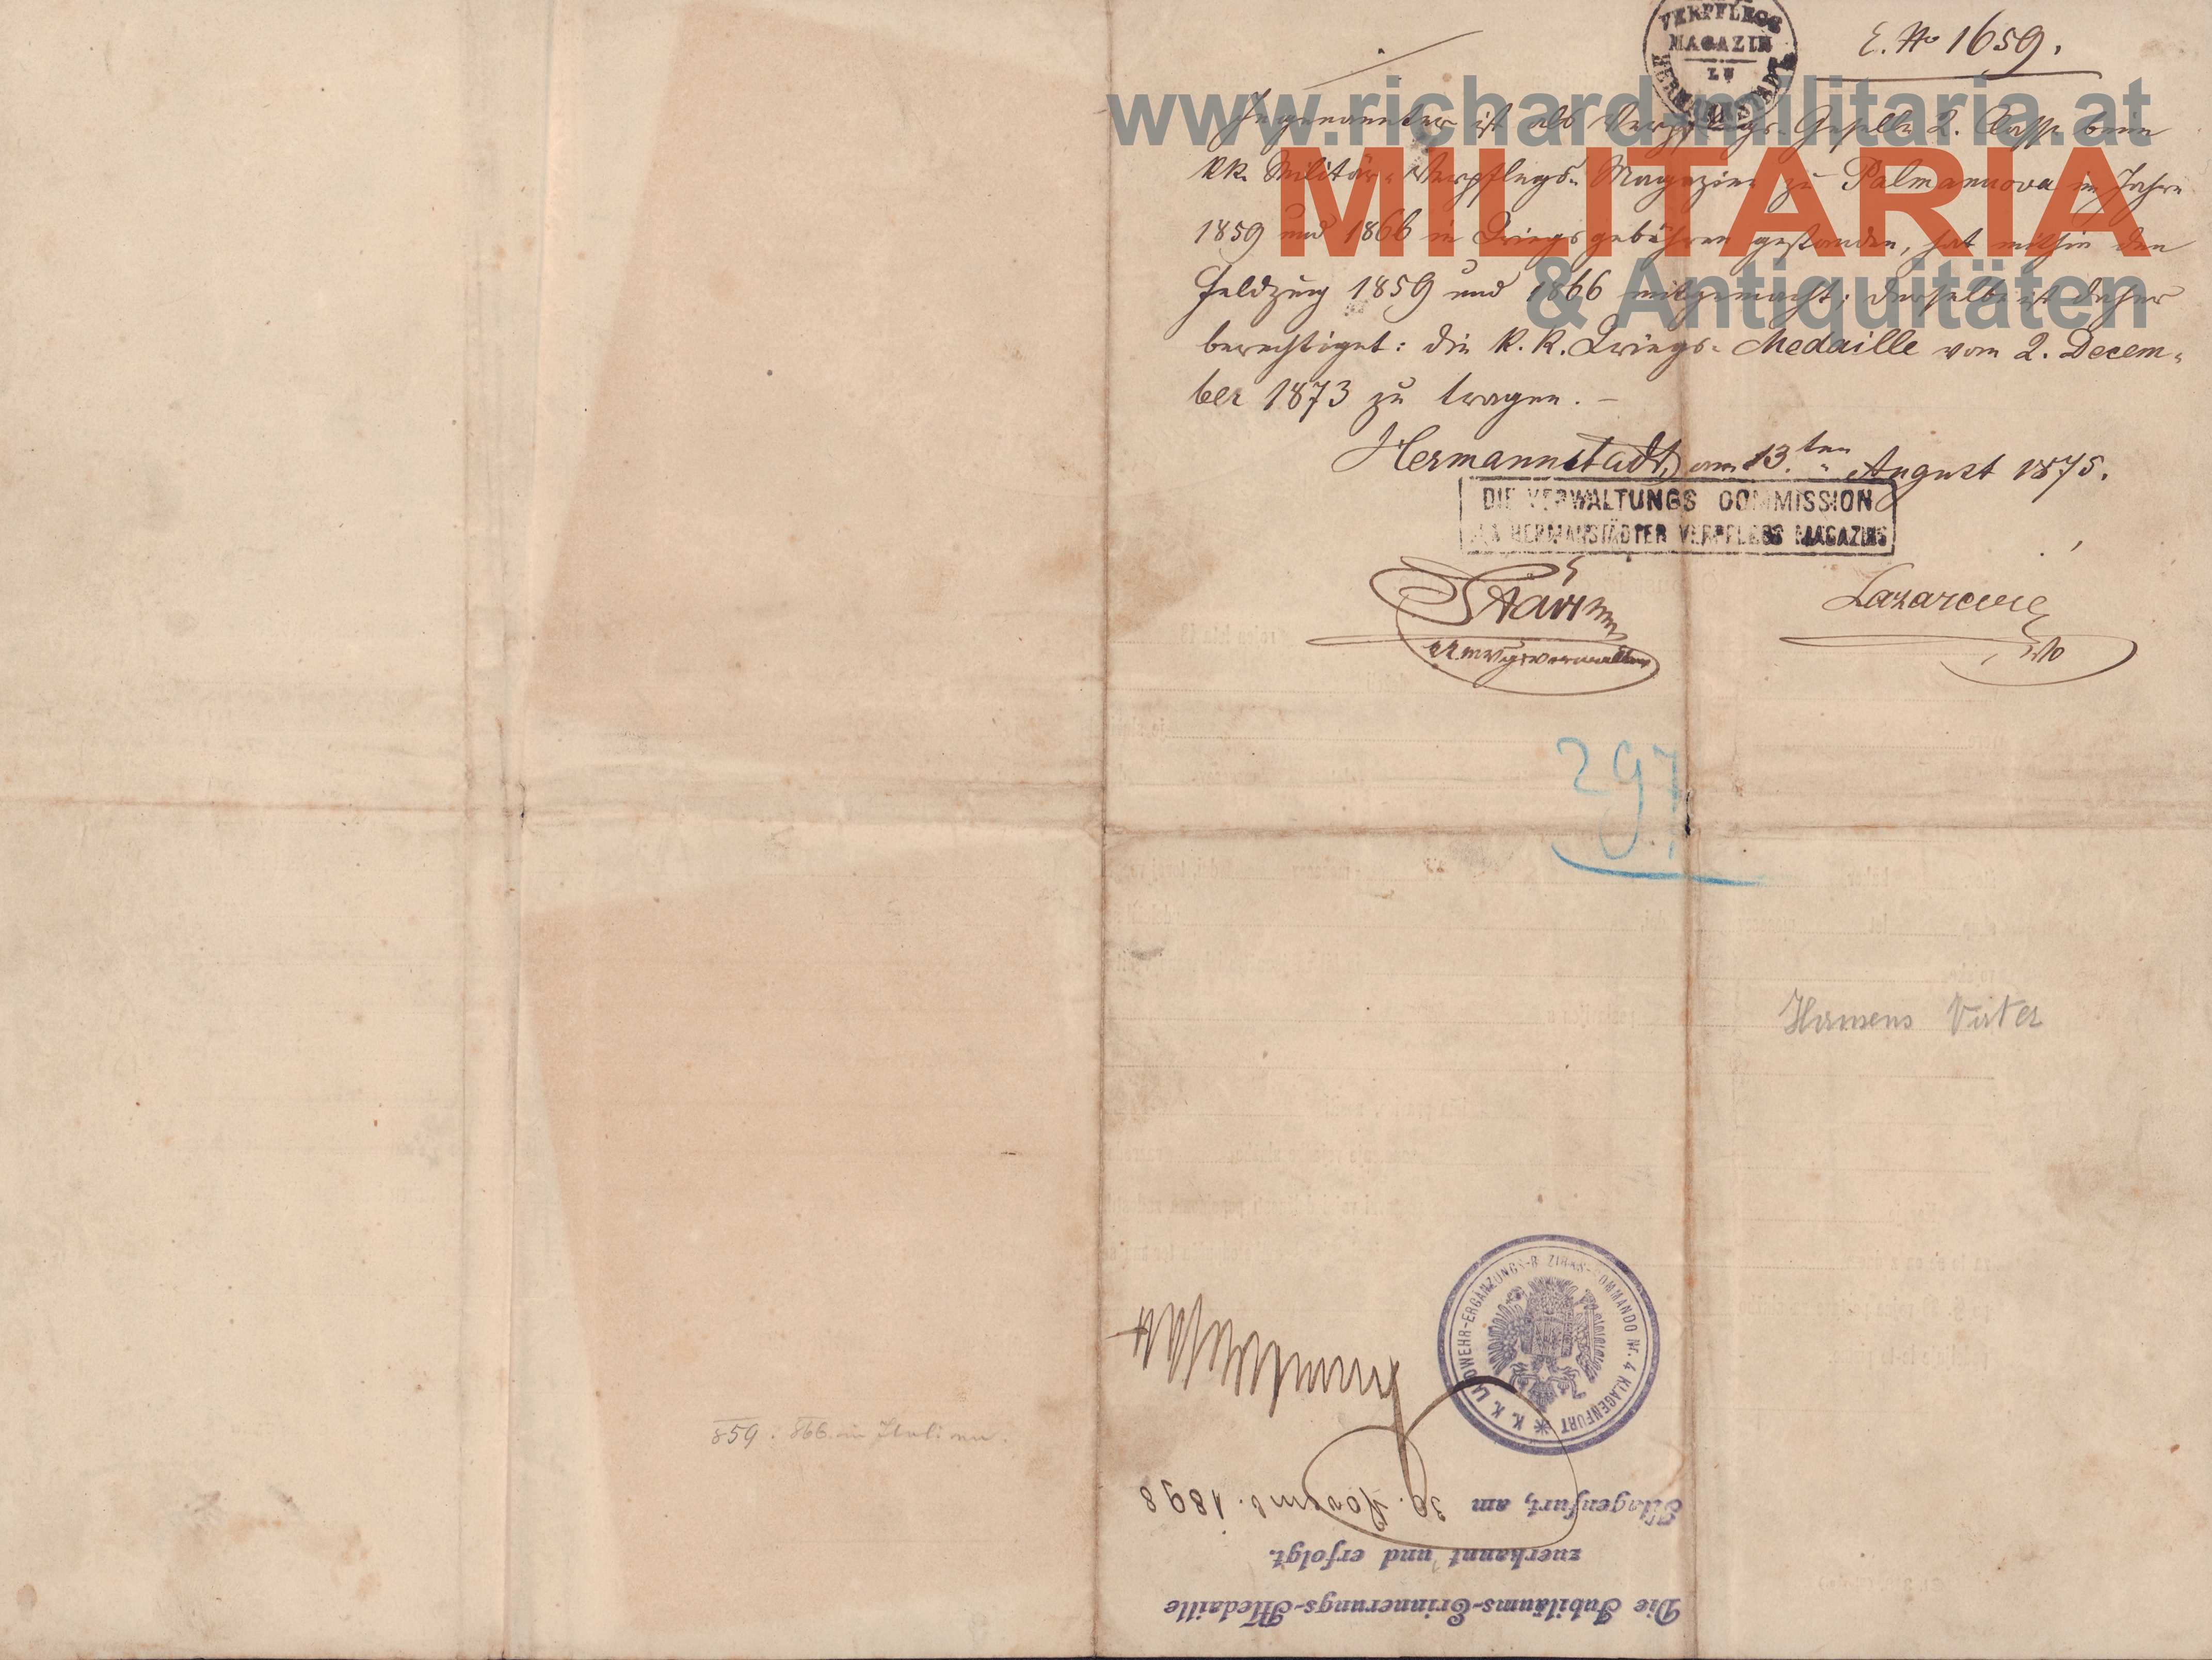 VERPFLEGS
MAGAZIN
ZU
HERMANNSTADT
E. No 1659.
www.richard-militaria.at
MILITARIA
& Antiquitäten
Ingenannter ist als Verpflegs-Geselle 2. Classe beim
kk. Militär-Verpflegs-Magazine zu Palmanuova im Jahre
1859 und 1866 in Kriegsgebühren gestanden, hat mithin den
Feldzug 1859 und 1866 mitgemacht; derselbe ist daher
berechtiget: die k. k. Kriegs-Medaille vom 2. Decem-
ber 1873 zu tragen. –
Hermannstadt, am 13.ten August 1875.
DIE VERWALTUNGS COMMISSION
HERMANSTÄDTER VERPFLEGS MAGAZINS
Lazarevic
297
Vater
859. 866 in Italien.
K. K. LANDWEHR-ERGÄNZUNGS-BEZIRKS-COMMANDO Nr. 4 KLAGENFURT
Die Jubiläums-Erinnerungs-Medaille
zuerkannt und erfolgt.
Klagenfurt, am 30. Novemb. 1898